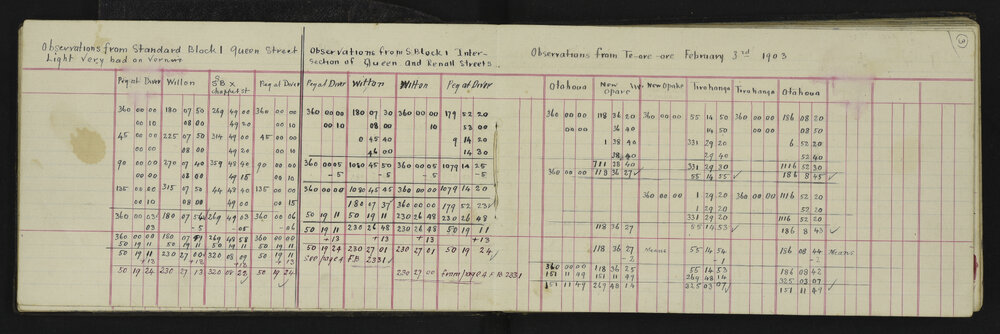 3
Observations from Standard Block 1 Queen Street
Light Very bad on Vernier
Observations from S.Block 1 Inter-
section of Queen and Renall Streets
Observations from Te-ore-ore February 3rd 1903
Peg at Diver Wilton SB x Chapel st Peg at Diver
360 00 00 180 07 50 269 49 00 360 00 00
00 10 08 00 49 20 00 10
45 00 00 225 07 50 314 49 00 45 00 00
00 00 08 00 49 20 00 10
90 00 00 270 07 40 359 48 40 90 00 00
00 00 08 00 49 15 00 00
135 00 00 315 07 50 44 48 40 135 00 00
00 10 08 00 49 00 00 15
360 00 03 180 07 269 49 03 360 00 06
03 -5 -05 -06
360 00 00 180 07 269 48 58 360 00 00
50 19 11 50 19 11 50 19 11 50 19 11
50 19 11 230 27 00 320 08 09 50 19 11
+13 +13 +13
50 19 24 230 27 13 320 08 23 50 19 24
Peg at Diver Wilton Wilton Peg at Diver
360 00 00 180 07 30 360 00 00 179 52 20
00 10 08 00 10 53 00
0 45 40 9 14 20
46 00 14 30
360 00 05 1080 45 50 360 00 05 1079 14 25
-5 -5 -5
360 00 00 1080 45 45 360 00 00 1079 14 20
180 07 37 360 00 00 179 52 23
50 19 11 50 19 11 230 26 48 230 26 48
50 19 11 230 26 48 230 26 48 50 19 11
+13 +13 +13 +13
50 19 24 230 27 01 230 27 01 50 19 24
see page 4 F.B. 2331
230 27 00 from page 4 F.B. 2331
Otahoua New Opake New Opake Tirohanga Tirohanga Otahoua
360 00 00 118 36 20 360 00 00 55 14 50 360 00 00 186 08 20
00 00 36 40 14 50 00 00 08 50
1 38 40 331 29 20 6 52 20
38 40 29 40 52 40
711 38 40 331 29 30 1116 52 30
360 00 00 118 36 27 55 14 55 186 8 45
360 00 00 1 29 20 360 00 00 52 20
1 29 20 52 20
331 29 20 1116 52 20
118 36 27 55 14 53 186 8 43
118 36 27 Means 55 14 54 186 08 44 Means
-2 -1 -2
360 00 00 118 36 25 55 14 53 186 08 42
151 11 49 151 11 49 269 48 14 325 03 07
151 11 49 269 48 14 325 03 07 151 11 49